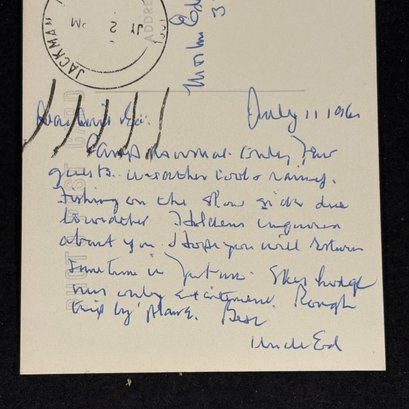 JACKMAN
JY
2
PM
ADDRE
POST CARD
Ed
3
July 11 196
Dear Ed:
Camp normal. Only few
guests. Weather cool & rainy.
Fishing on the slow side due
to weather. Holdens inquired
about you. I hope you will return
sometime in future. Sky Lodge
was only excitement. Rough
trip by plane. Best
Uncle Ed